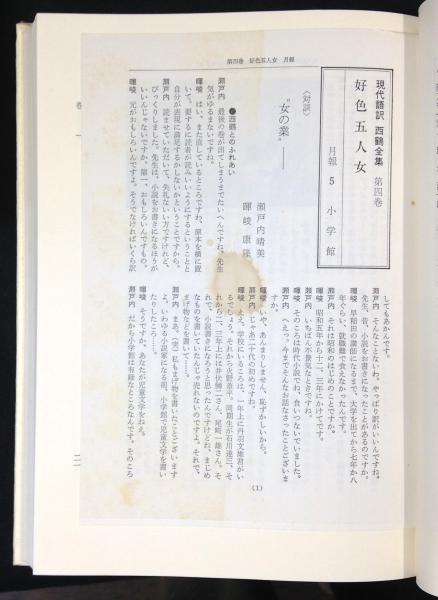 第四巻　好色五人女　月報
現代語訳　西鶴全集　第四巻
好色五人女
月報　5　小学館
〈対談〉
"女の業"――
瀬戸内晴美
暉峻康隆
●西鶴とのふれあい
瀬戸内　最後の巻が出てしまうまでたいへんですね。先生
気がゆるまないですね。
暉峻　はい、まだ直しているところですわ、原本を横に置
いて。要するに読者が読みいいようにするということと
自分が表現に満足するかしないかということですから。
瀬戸内　読ませていただいて、失礼ない方ですけれど、
びっくりしました。先生は、小説をお書きになるほうが
いいんじゃないですか。第一、おもしろいんですもの。
暉峻　元がおもしろいんですよ。そうでなければいくら訳
してもあかんです。
瀬戸内　そんなことないわ。やっぱり訳がいいんですね。
先生、昔、小説をお書きになったことがあるのですか。
暉峻　早稲田の講師になるまで、大学を出てから七年か八
年ぐらい、就職難で食えなかったんです。
瀬戸内　それは昭和のはじめのことですか。
暉峻　昭和五年から十二、三年にかけてです。
瀬戸内　いちばん不景気なときですね。
暉峻　そのころは時代小説でね、食いつないでいました。
瀬戸内　へえっ。今までそんなお話なさったことございま
すか。
暉峻　いや、あんまりしません、恥ずかしいから。
瀬戸内　じゃあ、これが初めてですね。
暉峻　ええ。学校にいるころは、一年上に丹羽文雄君がい
るでしょう。それから火野葦平。同期生が石川達三、そ
れから二、三年上には井伏鱒二さん、尾崎一雄さん。そ
れで、小説書きになろうと思ったんですけどね、まじめ
なものを書いていたんじゃ売れないのですよ。それで、
まげ物などを書いて……。
瀬戸内　まあ。(笑)　私もまげ物を書いたことございます
よ。いわゆる小説家になる前、小学館で児童文学を書い
たりしたころ。
暉峻　そうですか、あなたが児童文学をねえ。
瀬戸内　だから小学館は有縁なところなんです。そのころ
(1)